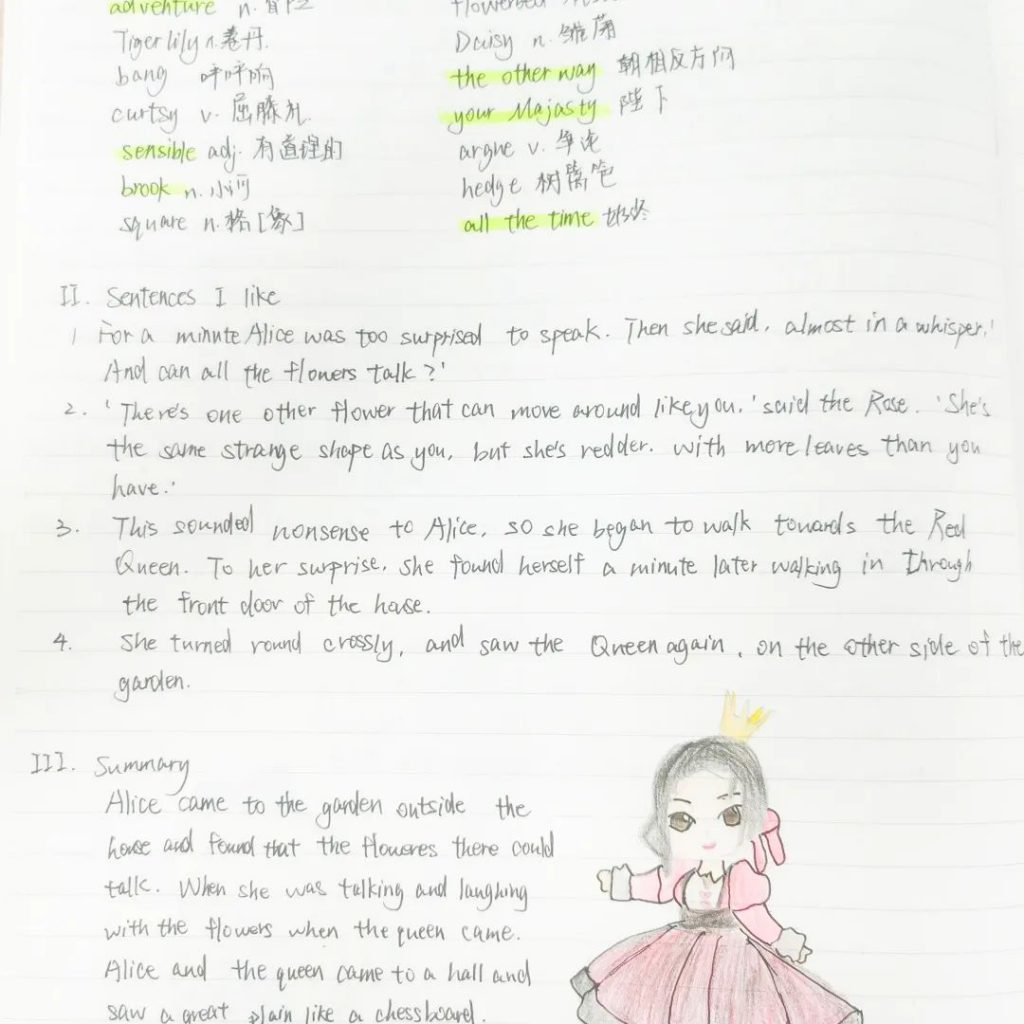 adventure n. 冒险
Tiger lily n. 卷丹.
Daisy n. 雏菊
bang 呯呯响
the other way 朝相反方向
curtsy v. 屈膝礼.
your Majasty 陛下
sensible adj. 有道理的
argue v. 争论
brook n. 小河
hedge 树篱笆
square n. 格[象]
all the time 始终
II. Sentences I like
1 For a minute Alice was too surprised to speak. Then she said, almost in a whisper,'
And can all the flowers talk?'
2. 'There's one other flower that can move around like you,' said the Rose. 'She's
the same strange shape as you, but she's redder. with more leaves than you
have.'
3. This sounded nonsense to Alice, so she began to walk towards the Red
Queen. To her surprise, she found herself a minute later walking in through
the front door of the house.
4. She turned round crossly, and saw the Queen again, on the other side of the
garden.
III. Summary
Alice came to the garden outside the
house and found that the floweres there could
talk. When she was talking and laughing
with the flowers when the queen came.
Alice and the queen came to a hall and
saw a great plain like a chessboard.